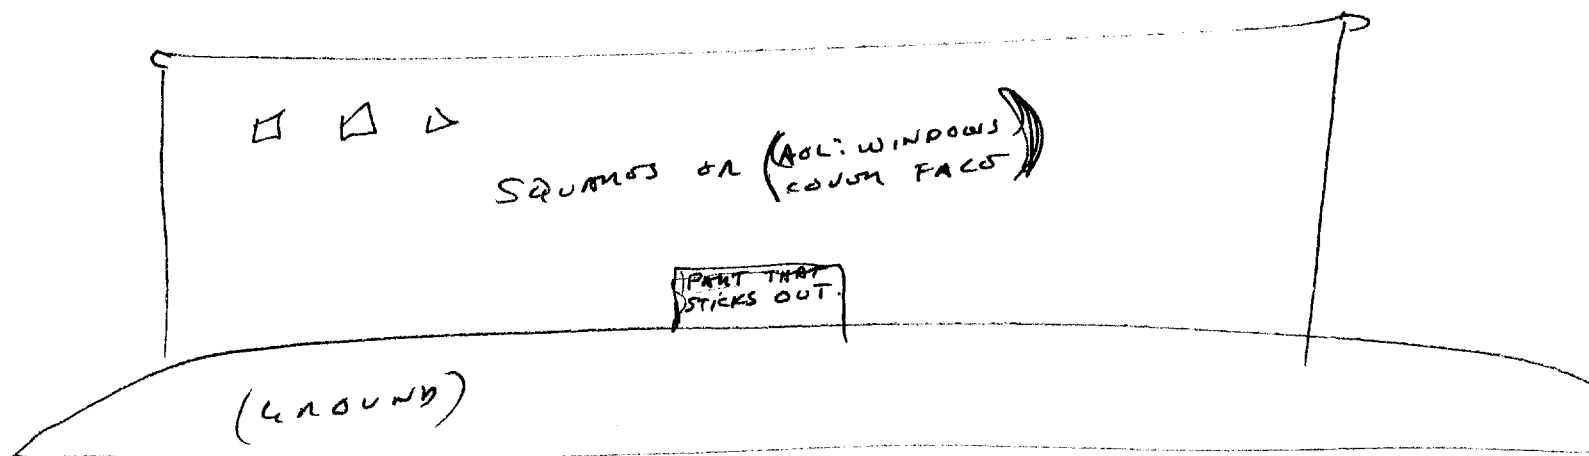 SQUARES OR (AOL: WINDOWS
COVER FACE)
PART THAT
STICKS OUT.
(GROUND)